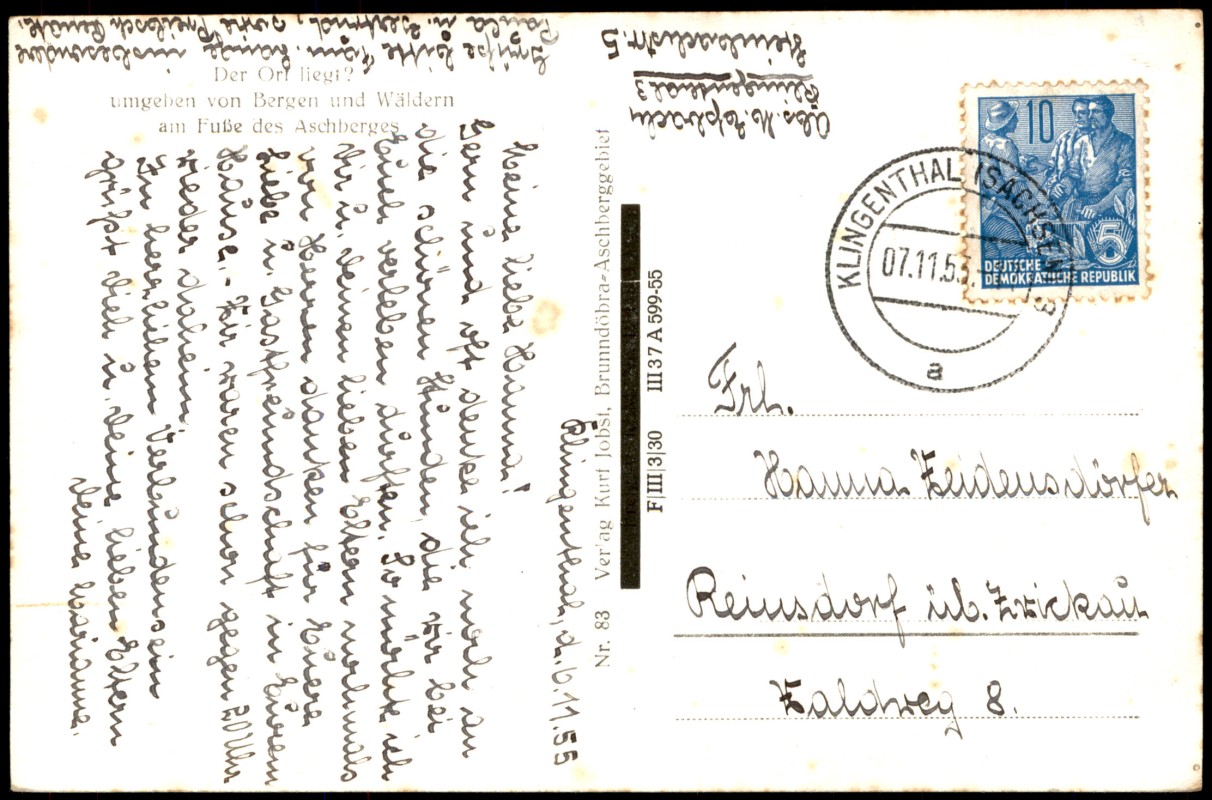 Der Ort liegt?
umgeben von Bergen und Wäldern
am Fuße des Aschberges
Klingenthal, d. 6.11.55
Meine liebe Hanna!
Gern und oft denke ich noch an
die schönen Stunden, die wir bei
Euch verleben durften. So möchte ich
Dir u. Deinen lieben Eltern nochmals
von Herzen danken für Euere
Liebe u. Gastfreundschaft in Eurem
Hause. - Wir waren schon gegen 20 Uhr
wieder daheim.
In herzlichem Verbundensein
grüßt Dich u. Deine lieben Eltern
Deine Marianne.
Grüße bitte insbesondere
Paula u. Gertrud, sowie
Nr. 83 Verlag Kurt Jobst, Brunndöbra-Aschberggebiet
F|III|3|30 III 37 A 599-55
Abs. M.
Klingenthal 3
Steinbachstr. 5
10
5
DEUTSCHE
DEMOKRATISCHE REPUBLIK
KLINGENTHAL (SACHSEN)
07.11.5
a
Frl.
Hanna Weidensdörfer
Reinsdorf üb. Zwickau
Waldweg 8.